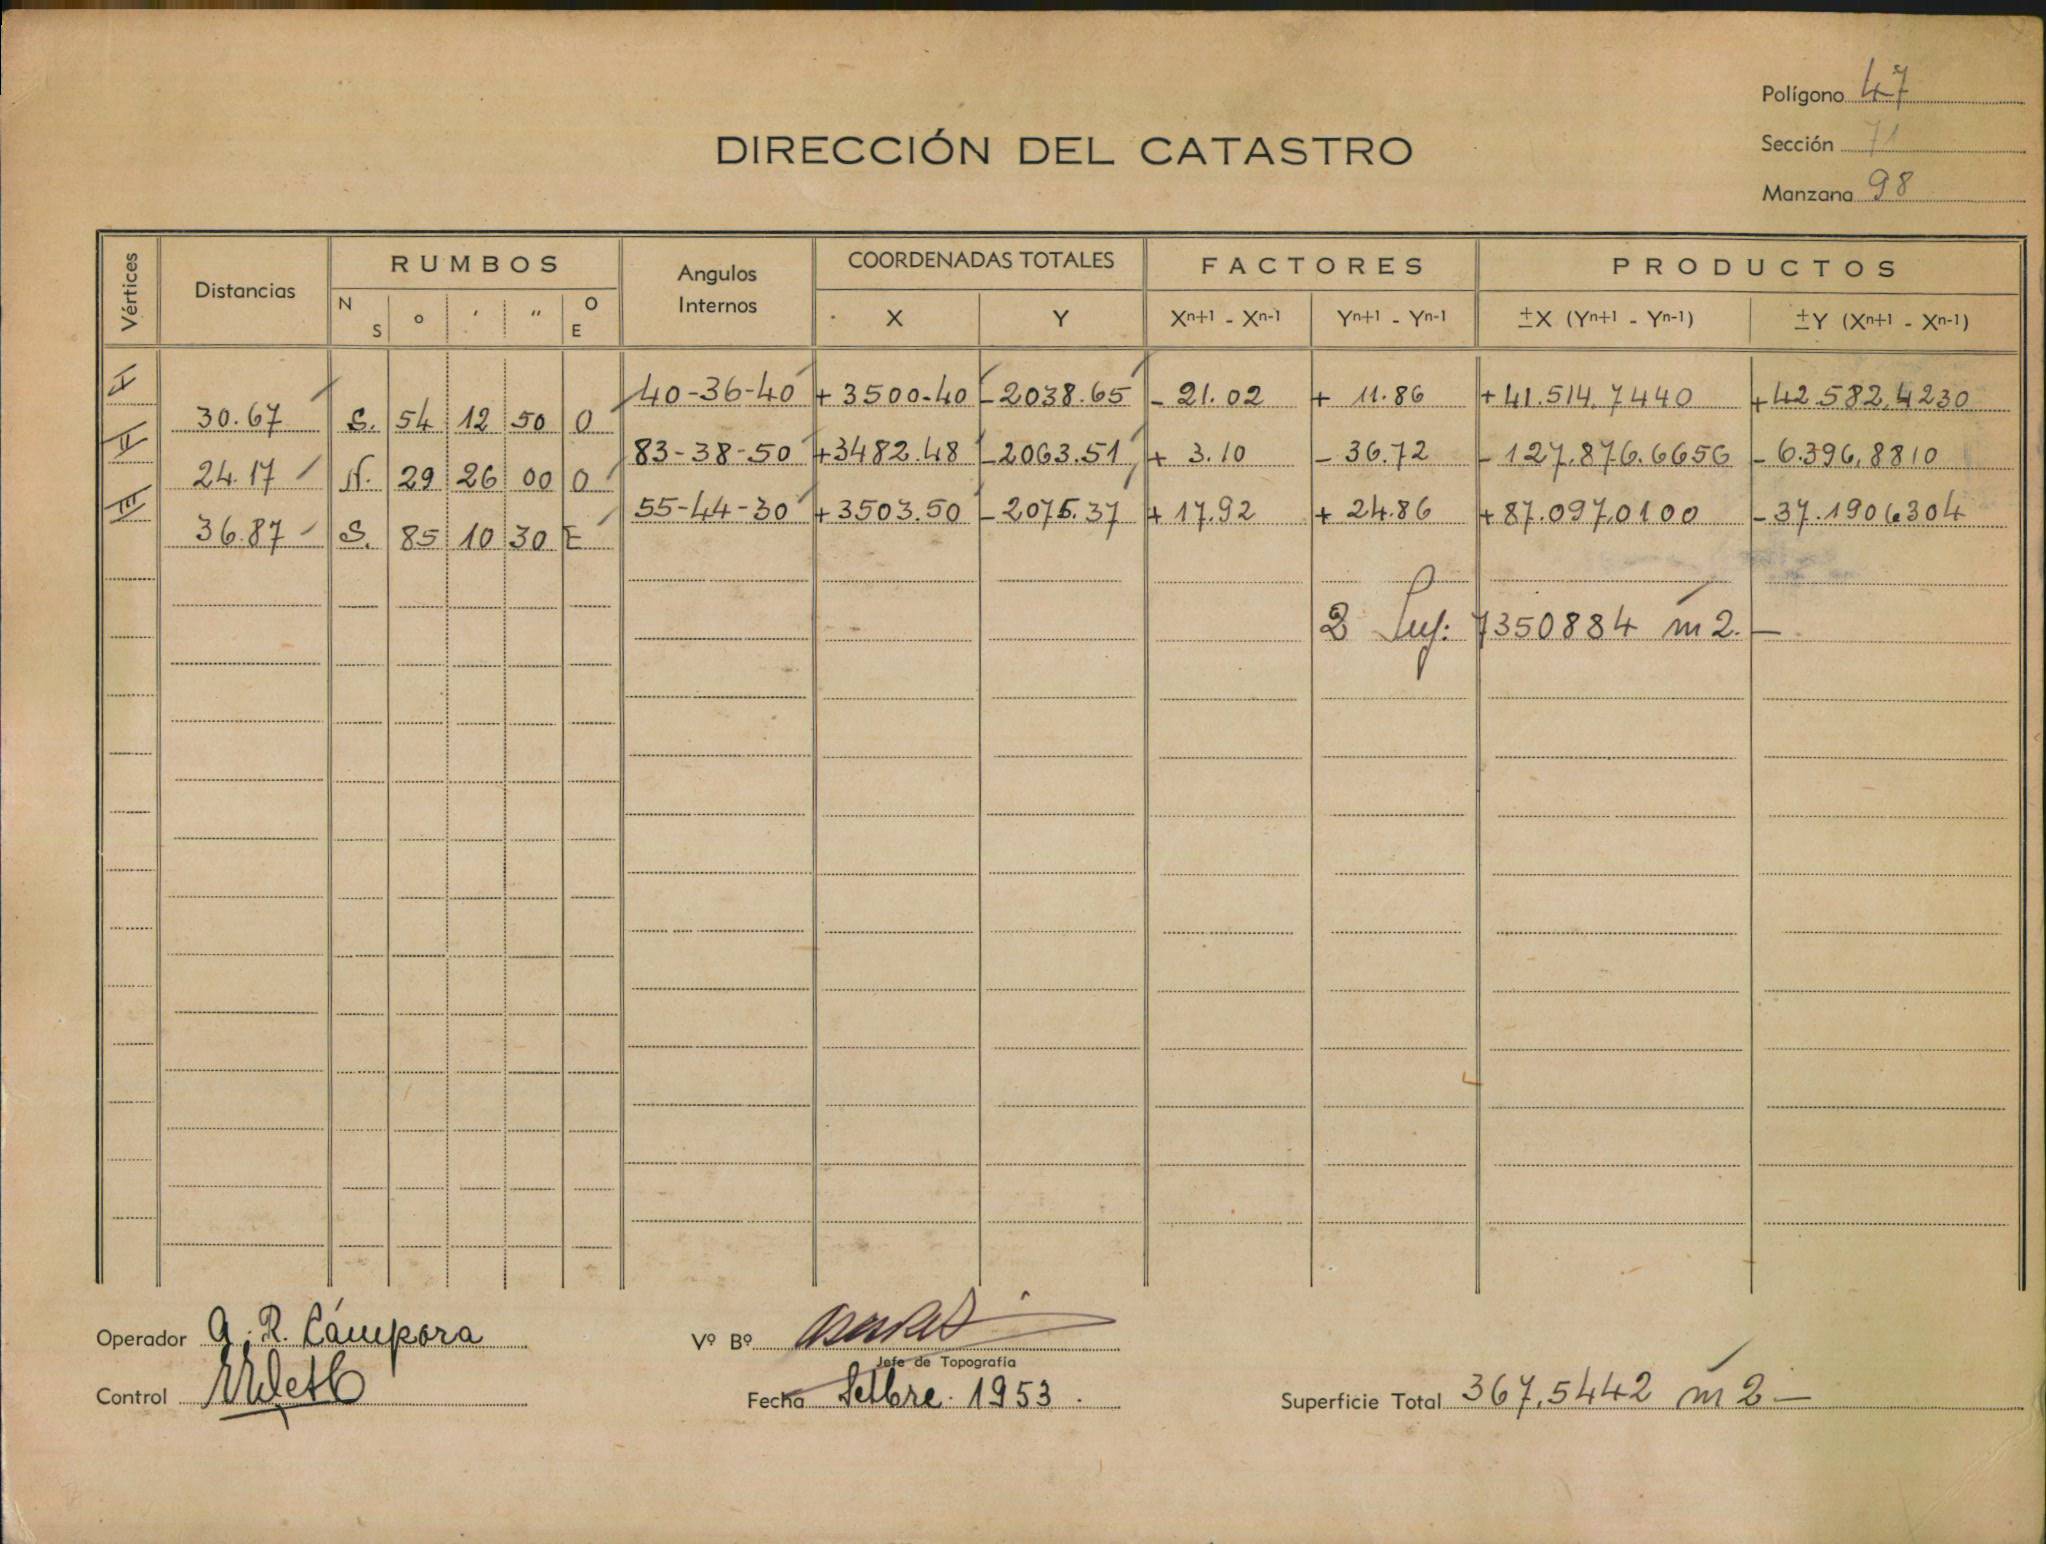 Polígono 47
DIRECCIÓN DEL CATASTRO
Sección 71
Manzana 98
Vértices Distancias RUMBOS Angulos Internos COORDENADAS TOTALES FACTORES PRODUCTOS
N S o ' '' O E X Y Xn+1 - Xn-1 Yn+1 - Yn-1 ±X (Yn+1 - Yn-1) ±Y (Xn+1 - Xn-1)
I 40-36-40 + 3500.40 - 2038.65 - 21.02 + 11.86 + 41.514.7440 + 42.582.4230
30.67 S. 54 12 50 O
II 83-38-50 + 3482.48 - 2063.51 + 3.10 - 36.72 - 127.876.6656 - 6.396,8810
24.17 N. 29 26 00 O
III 55-44-30 + 3503.50 - 2075.37 + 17.92 + 24.86 + 87.097.0100 - 37.190.6304
36.87 S. 85 10 30 E
2 Sup: 7350884 m2.—
Operador A. R. Cámpora
Vº Bº
Jefe de Topografía
Control
Fecha Setbre. 1953.
Superficie Total 367,5442 m2—